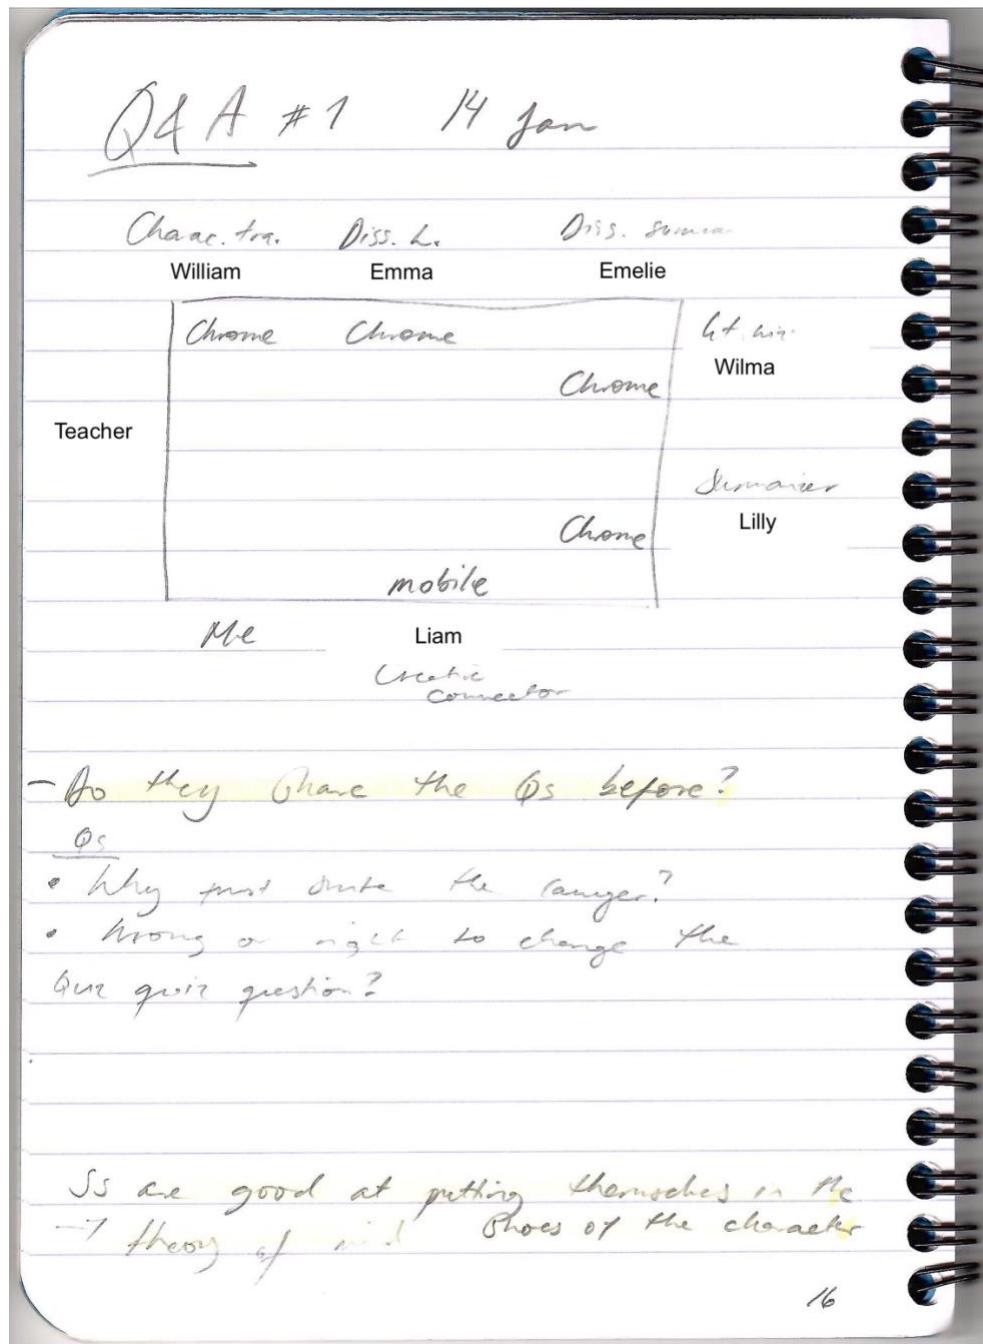 Q & A #1 14 Jan
Charac. tra. Diss. L. Diss. summa
William Emma Emelie
Chrome Chrome
Wilma
Chrome
Teacher
Lilly
Chrome
mobile
Me Liam
Creative
connector
- Do they share the Qs before?
Qs
• Why must the lawyer?
• Wrong or right to change the
quiz question?
Ss are good at putting themselves in the
shoes of the character
→ theory of mind
16